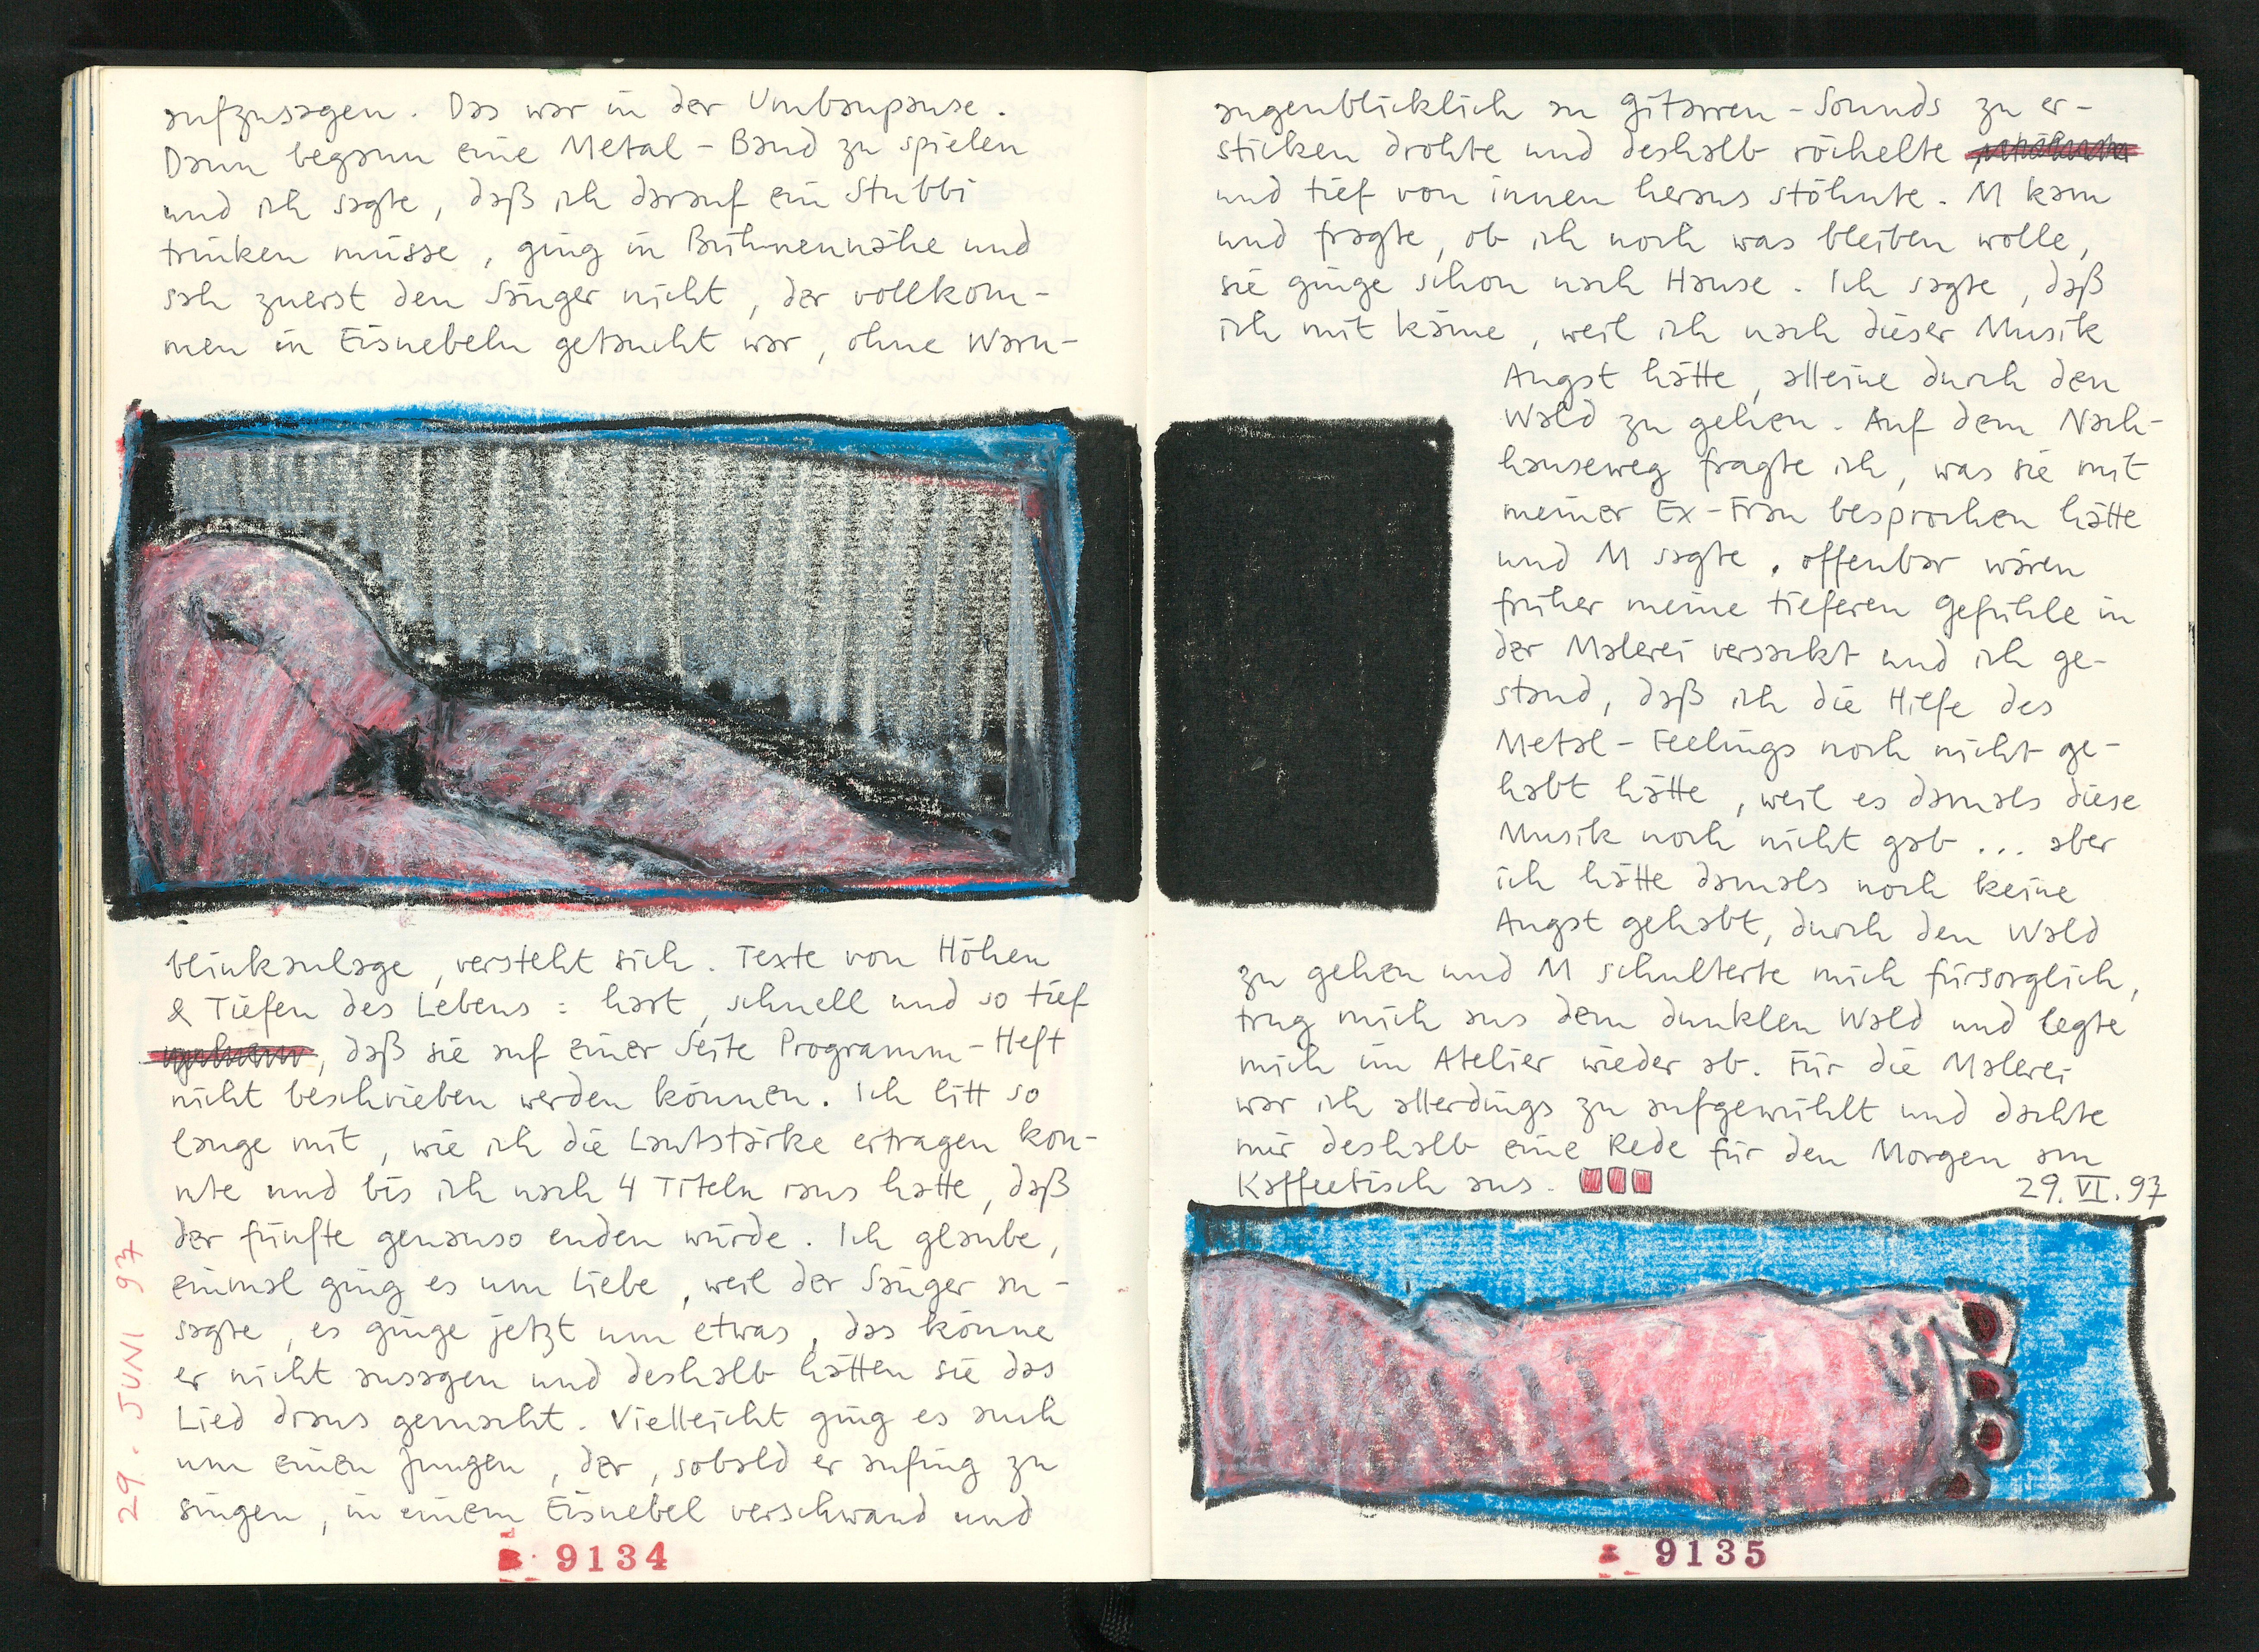 aufzusagen. Das war in der Umbaupause.
Dann begann eine Metal-Band zu spielen
und ich sagte, daß ich darauf ein Stubbi
trinken müsse, ging in Bühnennähe und
sah zuerst den Sänger nicht, der vollkom-
men in Eisnebeln getaucht war, ohne Warn-
blinkanlage, versteht sich. Texte von Höhen
& Tiefen des Lebens: hart, schnell und so tief
, daß sie auf einer Seite Programm-Heft
nicht beschrieben werden können. Ich litt so
lange mit, wie ich die Lautstärke ertragen kon-
nte und bis ich nach 4 Titeln raus hatte, daß
der fünfte genauso enden würde. Ich glaube,
einmal ging es um Liebe, weil der Sänger an-
sagte, es ginge jetzt um etwas, das könne
er nicht aussagen und deshalb hätten sie das
Lied draus gemacht. Vielleicht ging es auch
um einen Jungen, der, sobald er anfing zu
singen, in einem Eisnebel verschwand und
29. JUNI 97
9134
augenblicklich an Gitarren-Sounds zu er-
sticken drohte und deshalb röchelte
und tief von innen heraus stöhnte. M kam
und fragte, ob ich noch was bleiben wolle,
sie ginge schon nach Hause. Ich sagte, daß
ich mit käme, weil ich nach dieser Musik
Angst hätte, alleine durch den
Wald zu gehen. Auf dem Nach-
hauseweg fragte ich, was sie mit
meiner Ex-Frau besprochen hätte
und M sagte, offenbar wären
früher meine tieferen Gefühle in
der Malerei versackt und ich ge-
stand, daß ich die Hilfe des
Metal-Feelings noch nicht ge-
habt hätte, weil es damals diese
Musik noch nicht gab ... aber
ich hätte damals noch keine
Angst gehabt, durch den Wald
zu gehen und M schulterte mich fürsorglich,
trug mich aus dem dunklen Wald und legte
mich im Atelier wieder ab. Für die Malerei
war ich allerdings zu aufgewühlt und dachte
mir deshalb eine Rede für den Morgen am
Kaffeetisch aus.
29. VI. 97
9135